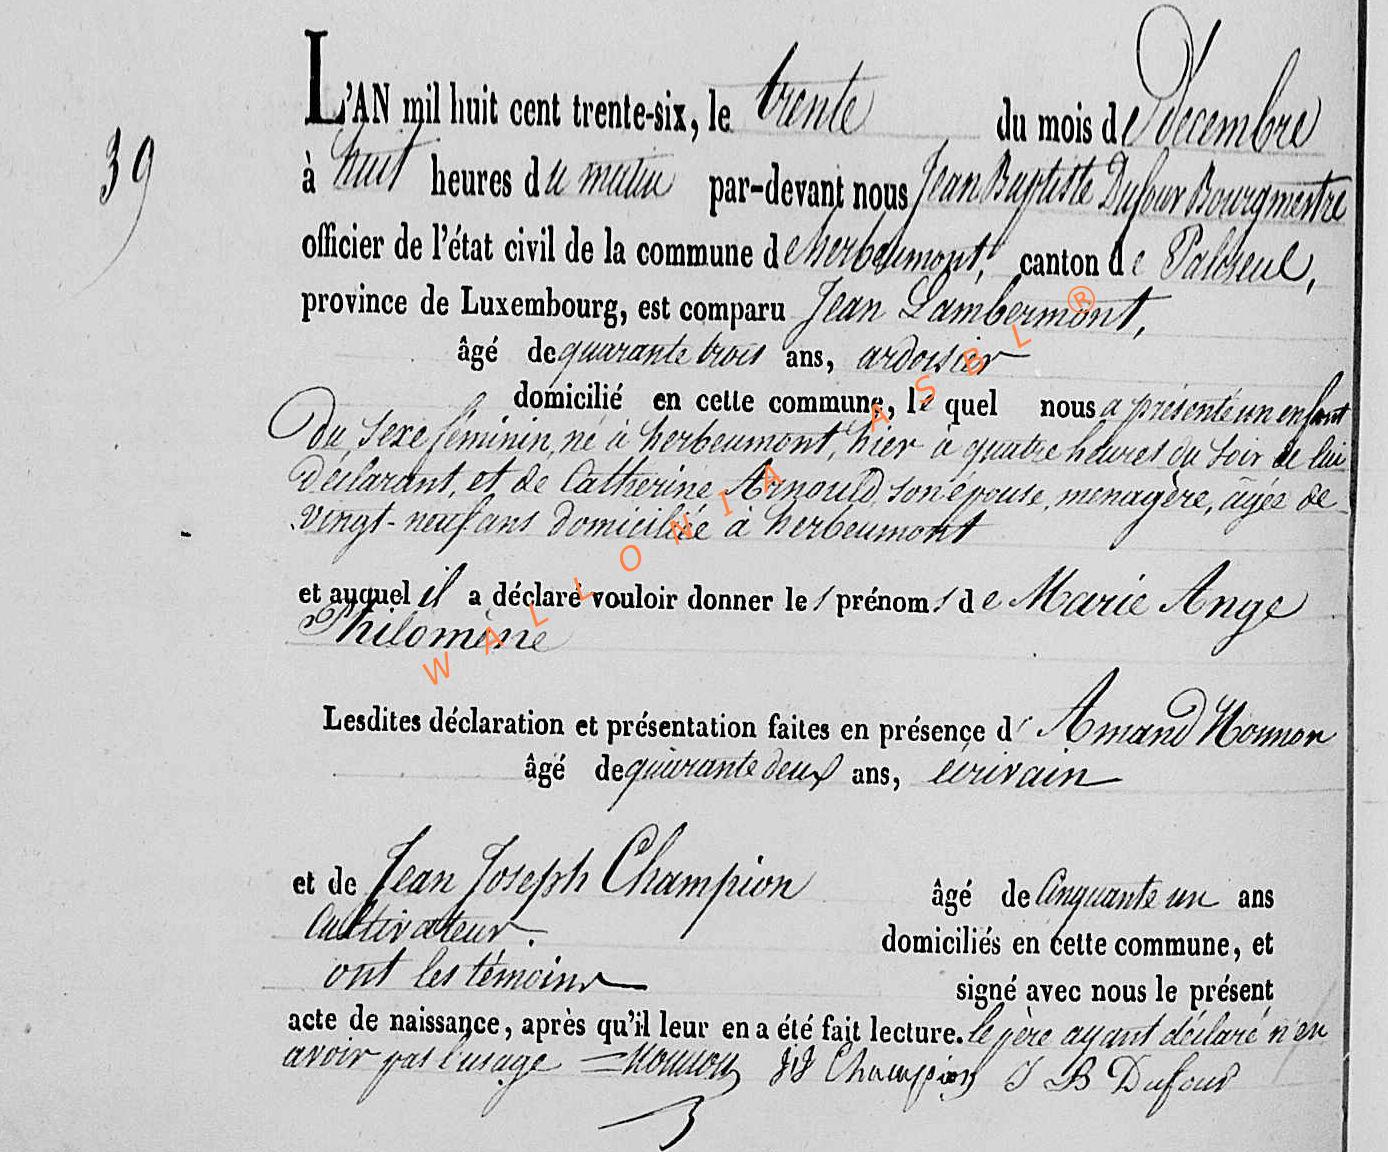 L'AN mil huit cent trente-six, le trente du mois de Décembre
39
à huit heures du matin par-devant nous Jean Baptiste Dufour Bourgmestre
officier de l'état civil de la commune de herbeumont, canton de Paliseul,
province de Luxembourg, est comparu Jean Lambermont,
âgé de quarante trois ans, ardoisier
domicilié en cette commune, le quel nous a présenté un enfant
du sexe féminin, né à herbeumont, hier à quatre heures du soir de lui
Déclarant, et de Catherine Arnould, son épouse, menagère, âgée de
vingt-neuf ans domiciliée à herbeumont
et auquel il a déclaré vouloir donner les prénoms de Marie Ange
Philomène
Lesdites déclaration et présentation faites en présence d' Amand
âgé de quarante deux ans, écrivain
et de Jean Joseph Champion âgé de Cinquante un ans
Cultivateur. domiciliés en cette commune, et
ont les témoins signé avec nous le présent
acte de naissance, après qu'il leur en a été fait lecture. le père ayant déclaré n'en
avoir pas l'usage JJ Champion J B Dufour
WALLONIA ASBL ®